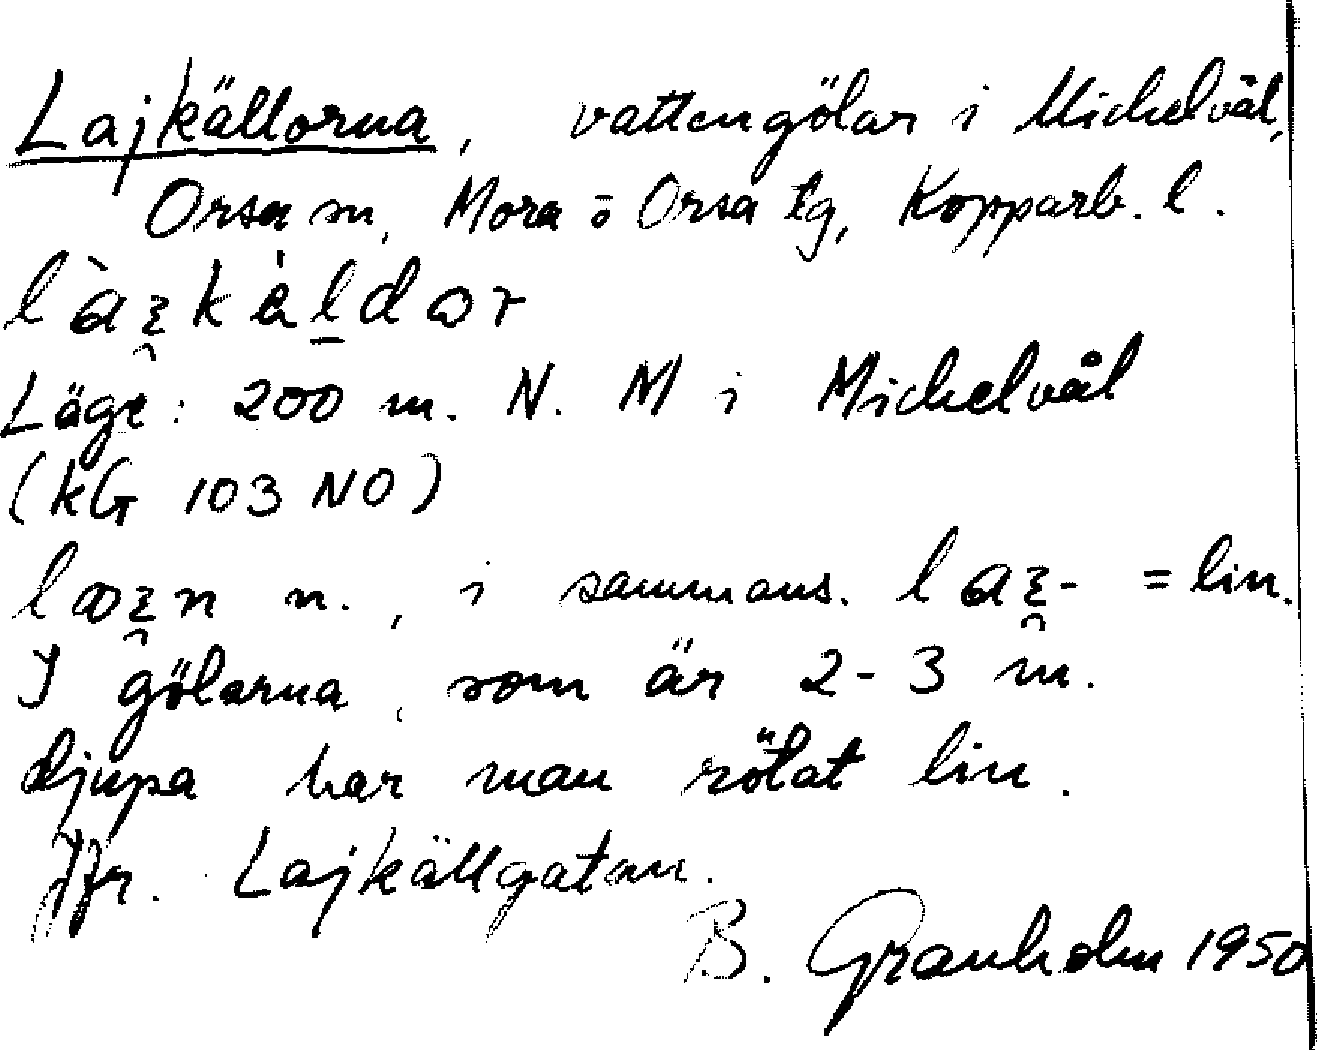 Lajkällorna, vattengölar i Mickelvål,
Orsa sn, Mora o Orsa tg, Kopparb. l.
Läge: 200 m. N. M i Mickelvål
(kG 103 NO)
n., i sammans. = lin.
I gölarna, som är 2-3 m.
djupa har man rötat lin.
Jfr. Lajkällgatan.
B. Granholm 1950